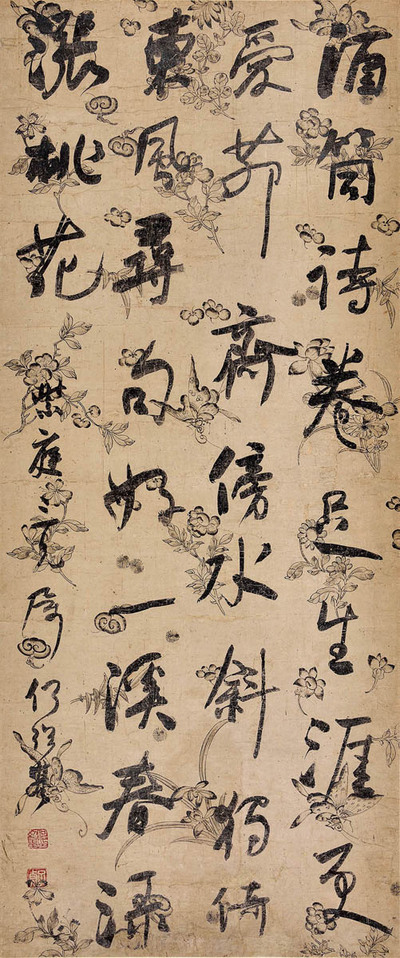 酒筒詩卷足生涯更
愛茆齋傍水斜獨倚
東風尋句好一溪春
漲桃花
紫庭三兄屬何紹基